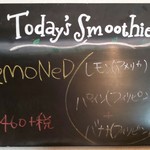 Today's Smoothie
EMONED
レモン(アメリカ)
パイン(フィリピン)
+
バナナ(フィリピン)
460+税